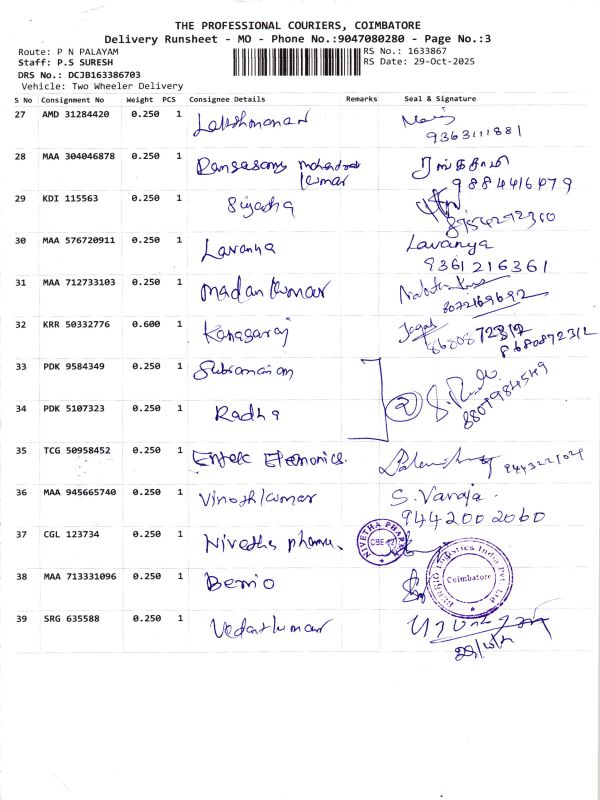 THE PROFESSIONAL COURIERS, COIMBATORE
Delivery Runsheet - MO - Phone No.:9047080280 - Page No.:3
Route: P N PALAYAM RS No.: 1633867
Staff: P.S SURESH RS Date: 29-Oct-2025
DRS No.: DCJB163386703
Vehicle: Two Wheeler Delivery
S No Consignment No Weight PCS Consignee Details Remarks Seal & Signature
27 AMD 31284420 0.250 1 Lakshmanan
9363111881
28 MAA 304046878 0.250 1 Rangasamy
Kumar
9884416479
29 KDI 115563 0.250 1 Sujatha
30 MAA 576720911 0.250 1 Lavanya Lavanya
9361216361
31 MAA 712733103 0.250 1 Madan Kumar
8072169692
32 KRR 50332776 0.600 1 Kanagaraj Jagan
8680872312
33 PDK 9584349 0.250 1 Subramaniam
34 PDK 5107323 0.250 1 Radha 2
35 TCG 50958452 0.250 1
36 MAA 945665740 0.250 1 Vinoth Kumar S. Varaja.
9442002060
37 CGL 123734 0.250 1 Nivetha pharma. NIVETHA PHARM
CBE
38 MAA 713331096 0.250 1 Logistics India Pvt Ltd
Coimbatore
39 SRG 635588 0.250 1